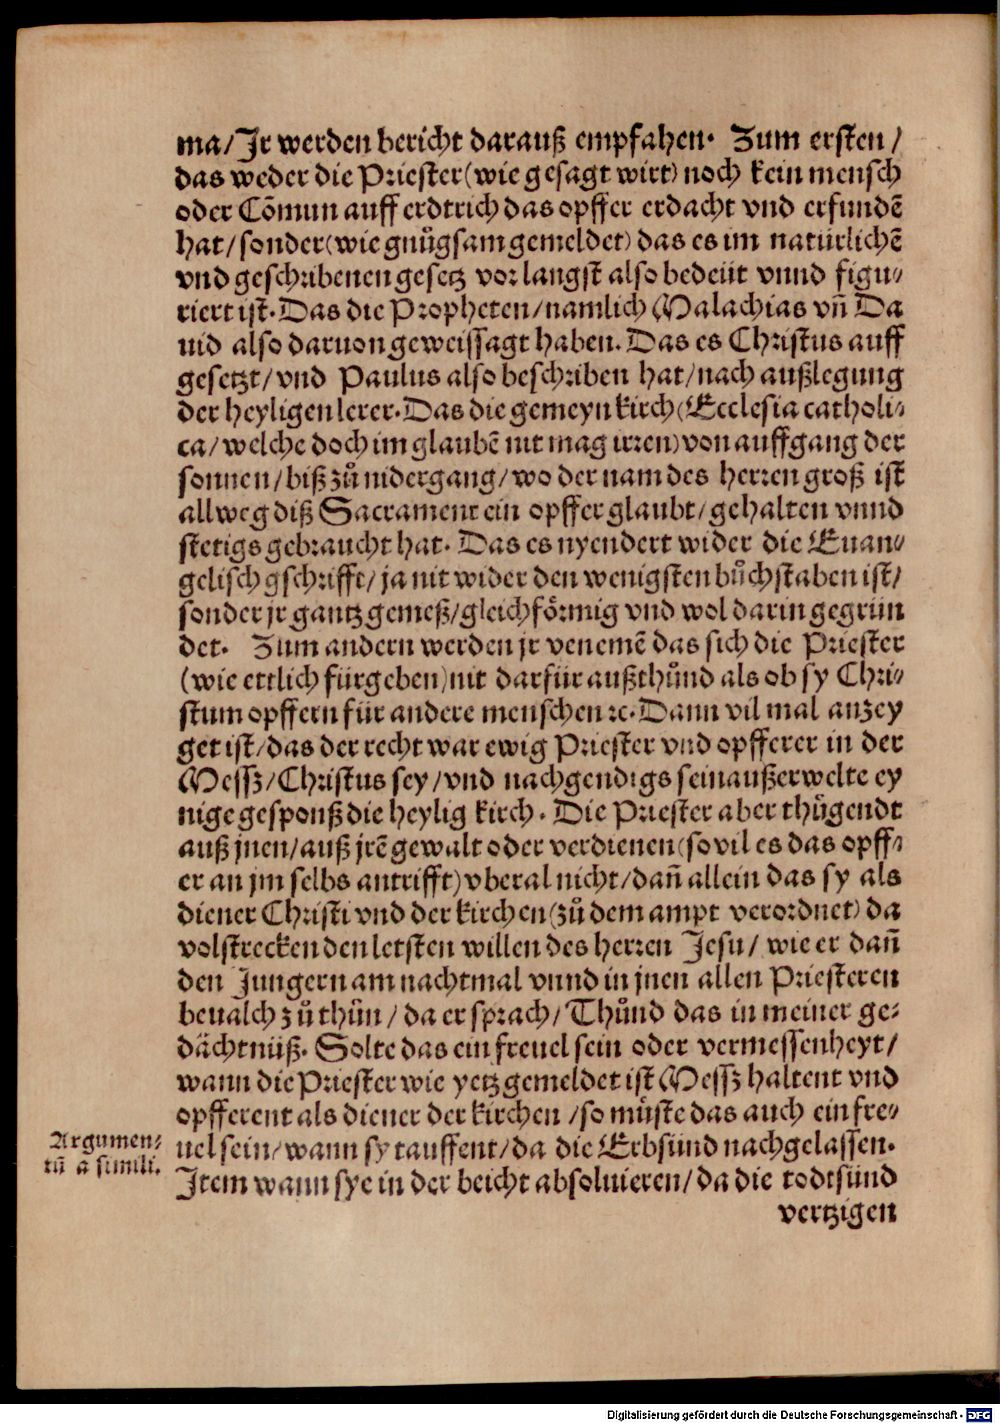 ma/Jr werden bericht darauß empfahen. Zum ersten/
das weder die Priester(wie gesagt wirt) noch kein mensch
oder Cõmun auff erdtrich das opffer erdacht vnd erfundẽ
hat/sonder(wie gnůgsam gemeldet) das es im natürlichẽ
vnd geschribenen gesetz vor langst also bedeüt vnnd figu-
riert ist. Das die Propheten/namlich Malachias vñ Da
uid also daruon geweissagt haben. Das es Christus auff
gesetzt/vnd Paulus also beschriben hat/nach außlegung
der heyligen lerer. Das die gemeyn kirch(Ecclesia catholi-
ca/welche doch im glaubẽ nit mag irren) von auffgang der
sonnen/biß zů nidergang/wo der nam des herren groß ist
allweg diß Sacrament ein opffer glaubt/gehalten vnnd
stetigs gebraucht hat. Das es nyendert wider die Euan-
gelisch gschrifft/ja nit wider den wenigsten bůchstaben ist/
sonder jr gantz gemeß/gleichförmig vnd wol darin gegrün
det. Zum andern werden jr venemẽ das sich die Priester
(wie ettlich fürgeben)nit darfür außthůnd als ob sy Chri-
stum opffern für andere menschen ꝛc. Dann vil mal anzey
get ist/das der recht war ewig Priester vnd opfferer in der
Messz/Christus sey/vnd nachgendigs sein außerwelte ey
nige gesponß die heylig kirch. Die Priester aber thůgendt
auß jnen/auß jrẽ gewalt oder verdienen(so vil es das opff-
er an jm selbs antrifft)vberal nicht/dañ allein das sy als
diener Christi vnd der kirchen(zů dem ampt verordnet) da
volstrecken den letsten willen des herren Jesu/wie er dañ
den Jungern am nachtmal vnnd in jnen allen Priesteren
beualch zů thůn/da er sprach/Thůnd das in meiner ge-
dächtnüß. Solte das ein freuel sein oder vermessenheyt/
wann die Priester wie yetz gemeldet ist Messz haltent vnd
opfferent als diener der kirchen/so müste das auch ein fre-
uel sein/wann sy tauffent/da die Erbsünd nachgelassen.
Argumen-
tũ a simili.
Item wann sye in der beicht absoluieren/da die todtsünd
vertzigen
Digitalisierung gefördert durch die Deutsche Forschungsgemeinschaft - DFG